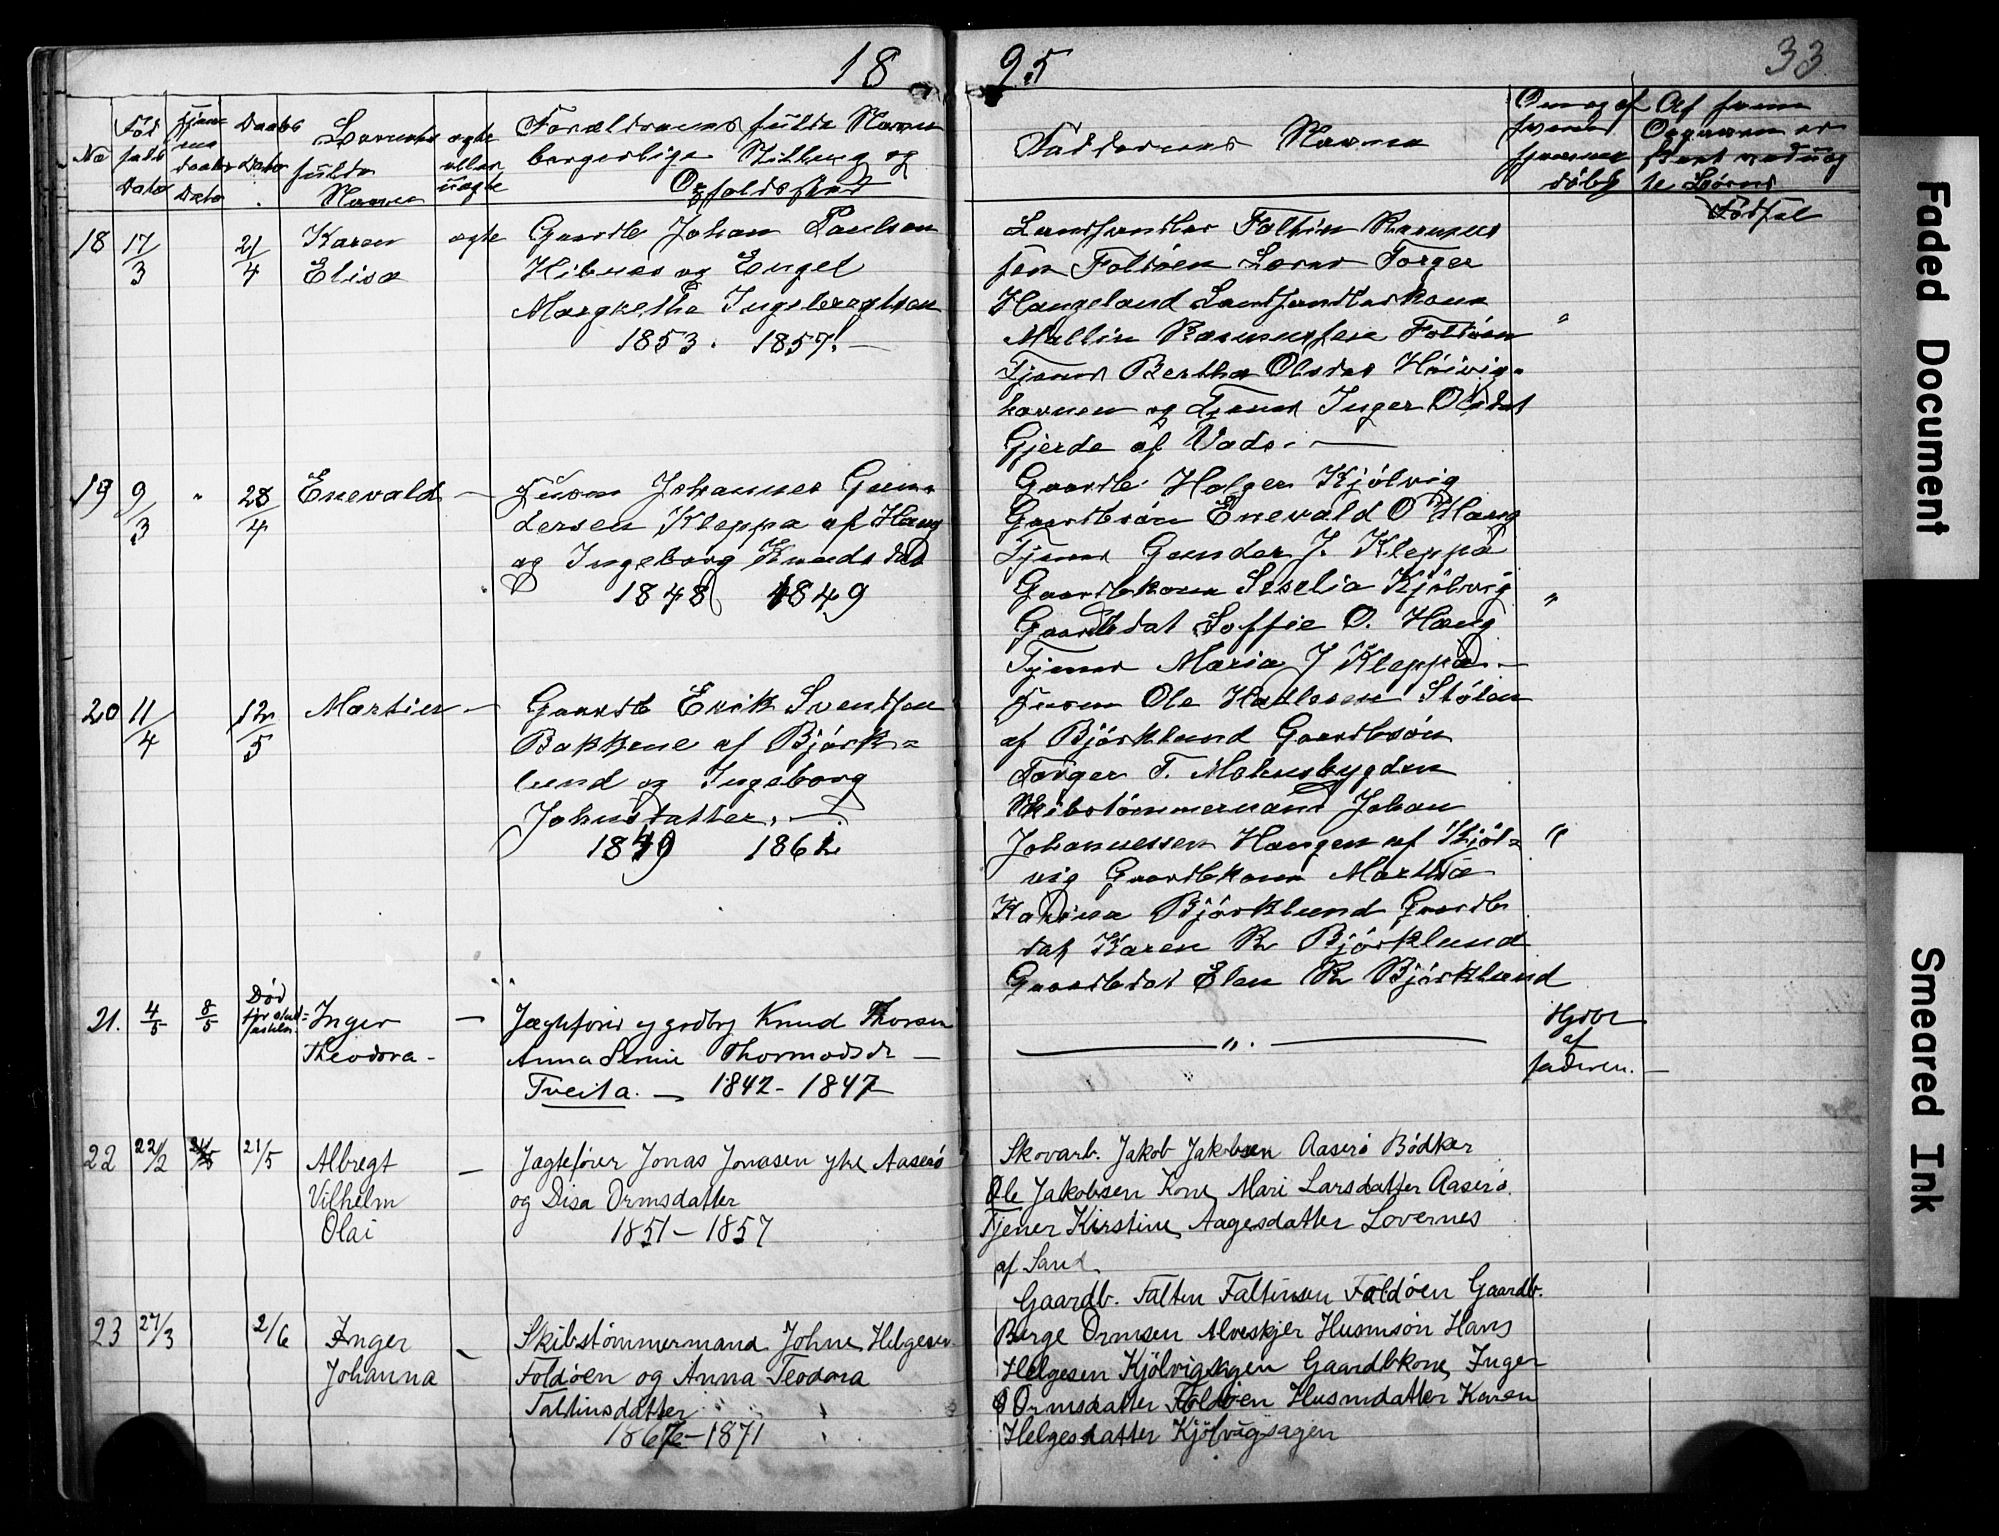 18 95
33
No
Fød
sels
Dato
Hjem
me
daabs
Dato
Daabs
Dato
Barnets
fulde
Navn
ægte
eller
uægte
Forældrenes fulde Navn
borgerlige Stilling og
Opholdssted
Faddernes Navne
Om og af
hvem
hjemme
døbt
Af hvem
Opgaven er
te Børns
Fødsel
18 17/3 21/4 Karen ægte Gaardb Johan Paulsen
Elisa Hibnes og Engel
Margrethe Ingebregtsen
1853. 1857. —
Landhandler Faltin Rasmus
sen Foldöen Torger
Haugeland Landhandlerkone
Mallin Rasmussen Foldöen "
Tjener Bertha Olsdat Höivig-
havnen og Tjener Inger Olsdat
Gjerde af Vads. —
19 9/3 " 28/4 Enevald — Husm Johannes Gun-
dersen Kleppa af Haug
og Ingeborg Knudsdat
1848 1849
Gaardb. Holger Kjölvig
Gaardbsön Enevald O Haug
Tjener Gunder J. Kleppa
Gaardbkone Seselia Kjölvig "
Gaardbdat Soffie O. Haug
Tjener Maria J Kleppa. —
20 11/4 12/5 Martin — Gaardb Erik Svendsen
Bakkene af Björk=
lund og Ingeborg
Johnsdatter. —
1849 1862
Husm Ole Hadlesen Stölen
af Björklund Gaardbsön
Torger T. Mohusbygden
Skibstömmermand Johan
Johannessen Haugen af Kjöl= "
vig Gaardbkone Martha
Karina Björklund Gaardb
dat Karen R Björklund
Gaardbdat Elen R Björklund
21. 4/5 8/5 Død
før stad=
fæstelse Inger — Jægtefører og grdbr Knud Thorsen
Theodora - Anna Serine Thormodsdr —
Tveita. — 1842 - 1847
— ". —
Hjdbt
af
faderen. —
22 22/2 21/5 Albregt — Jagtefører Jonas Jonasen ytre Aaserø
Vilhelm og Disa Ormsdatter
Olai 1851 - 1857
Skovarb. Jakob Jakobsen Aaserø Bødker
Ole Jakobsen Kone Mari Larsdatter Aaserø.
Tjener Kirstine Aagesdatter Lovernes
af Sand.
23 27/3 2/6 Inger — Skibstømmermand Johne Helgesen
Johanna Foldøen og Anna Teodora
Faltinsdatter
1867 - 1871
Gaardb. Falten Faltinsen Foldøen Gaardb.
Børge Ormsen Alveskjer Husmsøn Hans
Helgesen Kjölvigsagen Gaardbkone Inger
Ormsdatter Foldöen Husmdatter Karen
Helgesdatter Kjölvigsagen
Faded Document
Smeared Ink